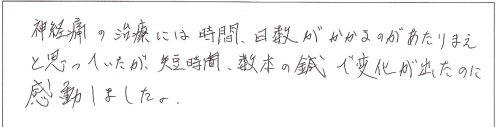 神経痛の治療には時間、日数がかかるのがあたりまえ
と思っていたが、短時間、数本の鍼で変化が出たのに
感動しましたよ。